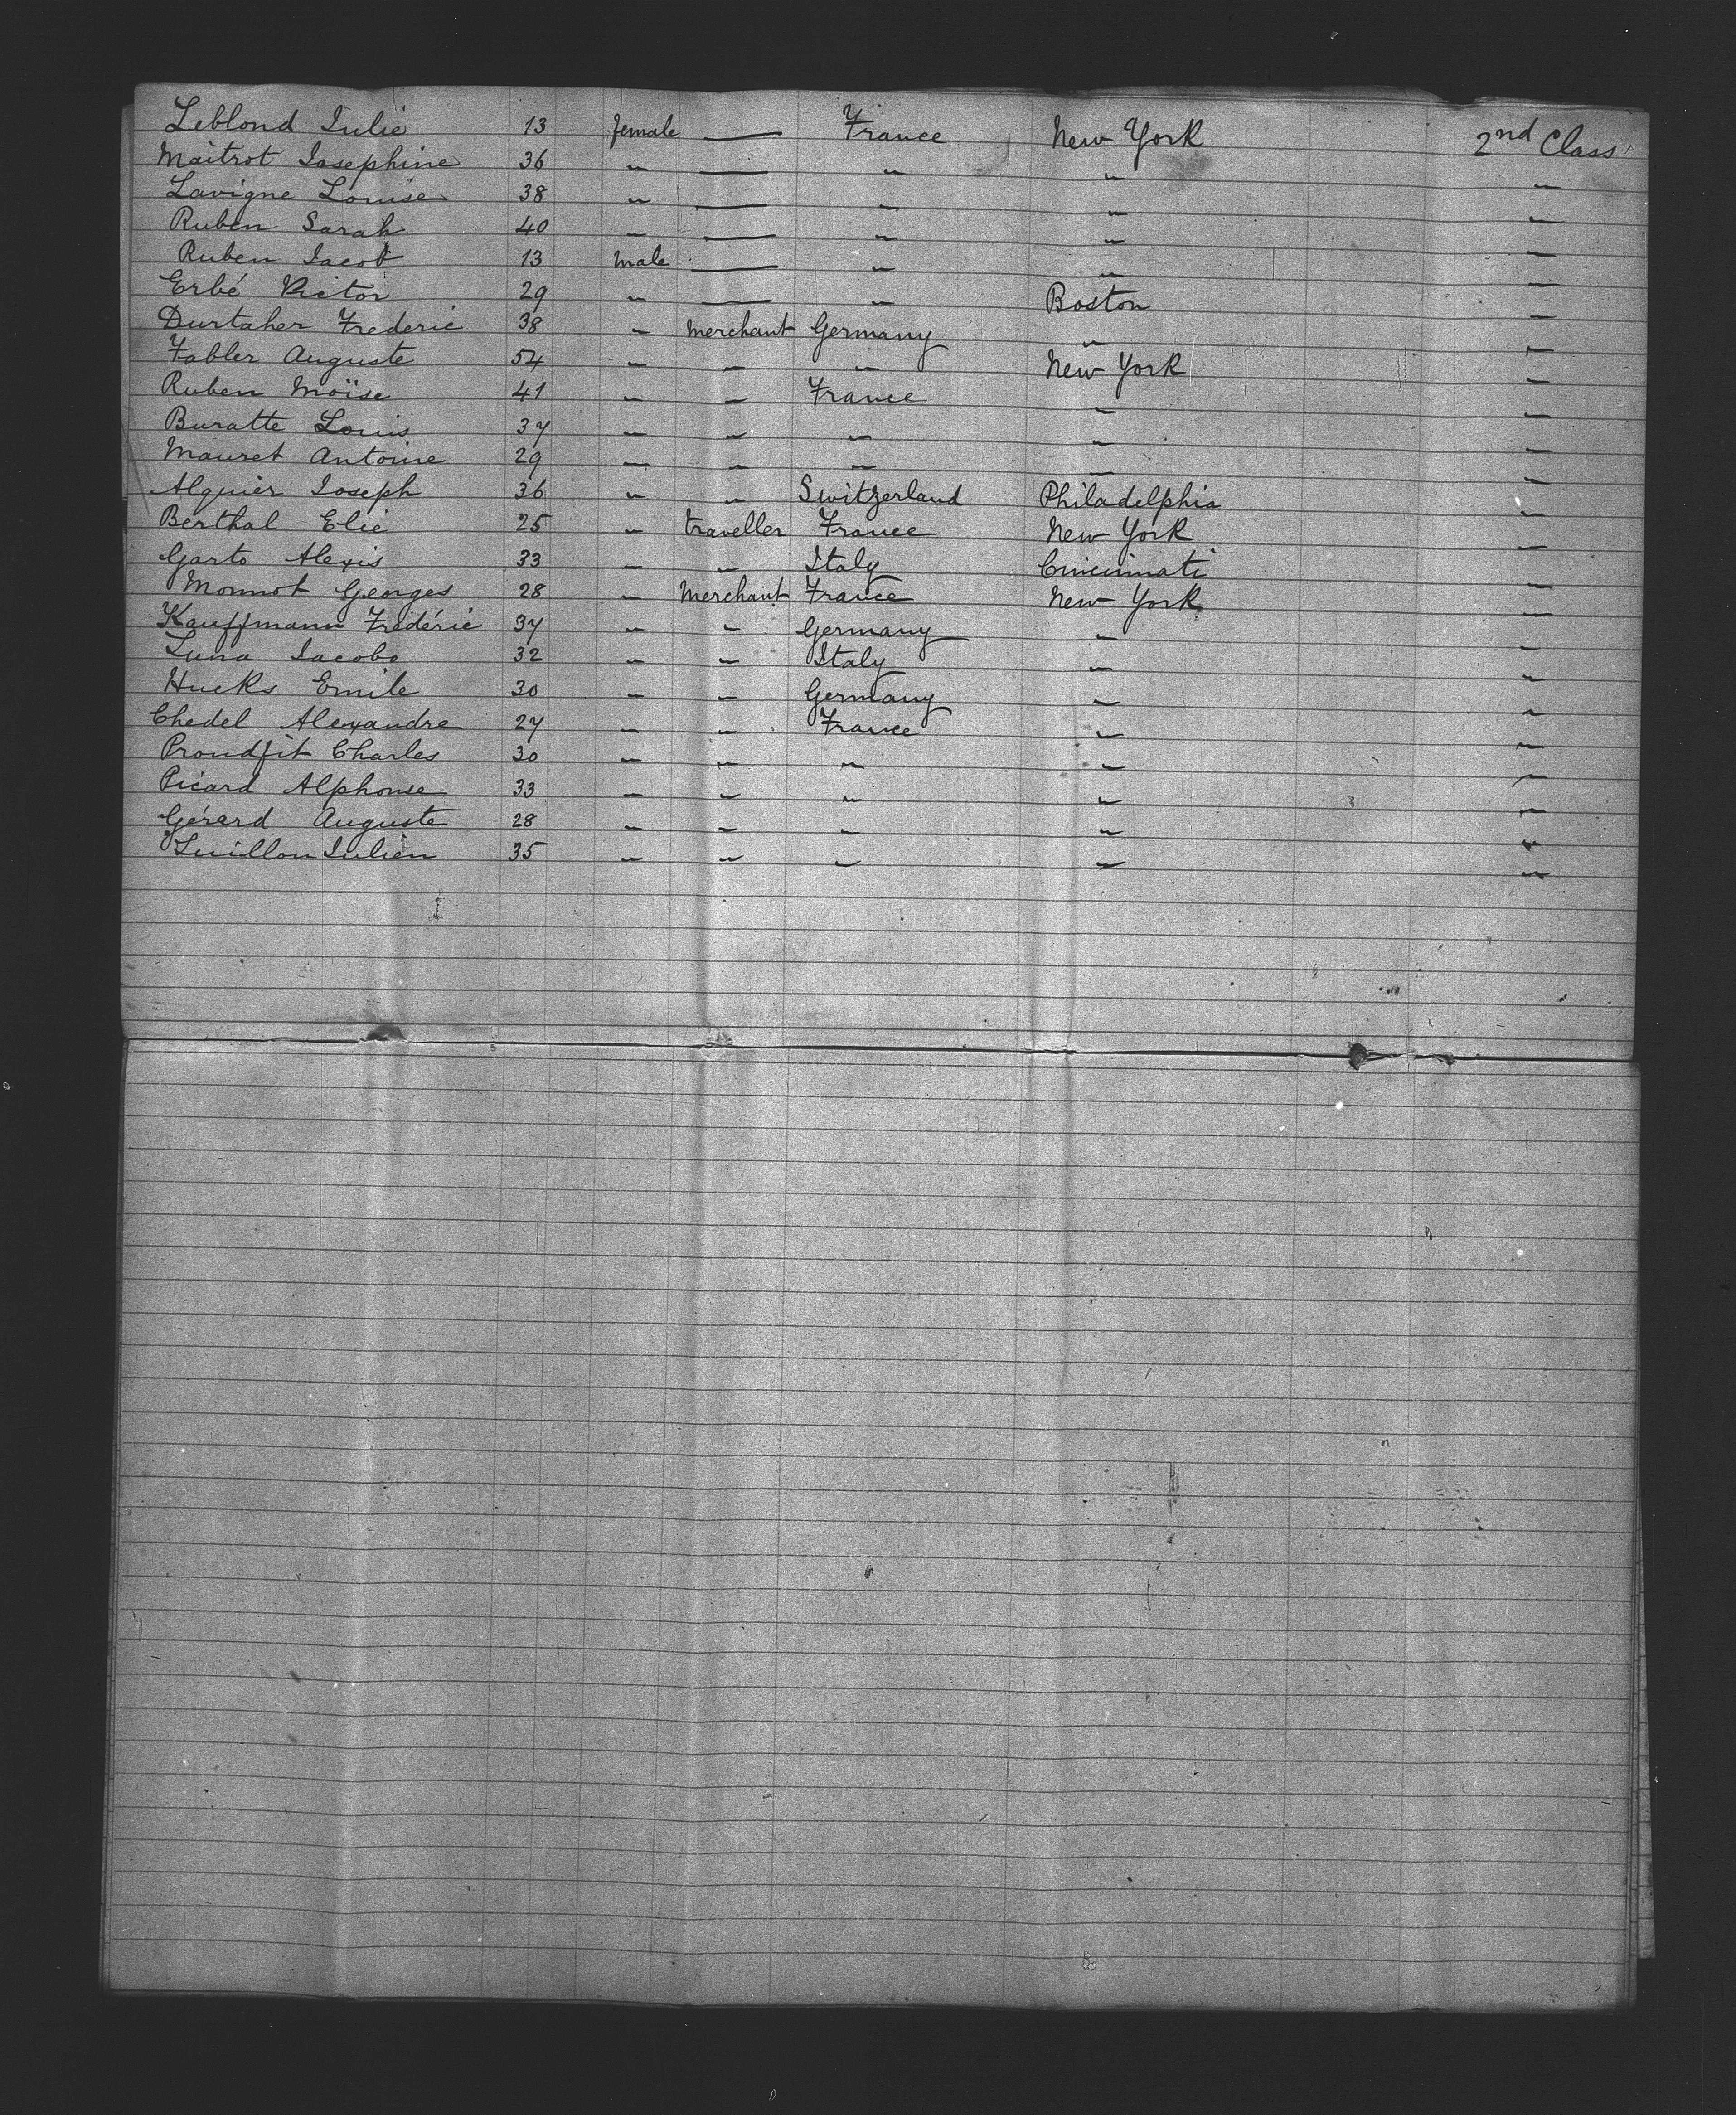 Leblond Julie 13 female — France New York 2nd Class
Maitrot Josephine 36 " — " " "
Lavigne Louise 38 " — " " "
Ruben Sarah 40 " — " " "
Ruben Jacob 13 male — " " "
Erbé Victor 29 " — " Boston "
Durtaher Frederic 38 " Merchant Germany " "
Fabler Auguste 54 " " " New York "
Ruben Moïse 41 " " France " "
Buratte Louis 37 " " " " "
Mauret Antoine 29 " " " " "
Alquier Joseph 36 " " Switzerland Philadelphia "
Berthal Elie 25 " traveller France New York "
Garto Alexis 33 " " Italy Cincinnati "
Monnot Georges 28 " Merchant France New York "
Kauffmann Frédéric 37 " " Germany " "
Luna Jacobo 32 " " Italy " "
Hucks Emile 30 " " Germany " "
Chedel Alexandre 27 " " France " "
Proudfit Charles 30 " " " " "
Picard Alphonse 33 " " " " "
Gérard Auguste 28 " " " " "
Julien 35 " " " " "